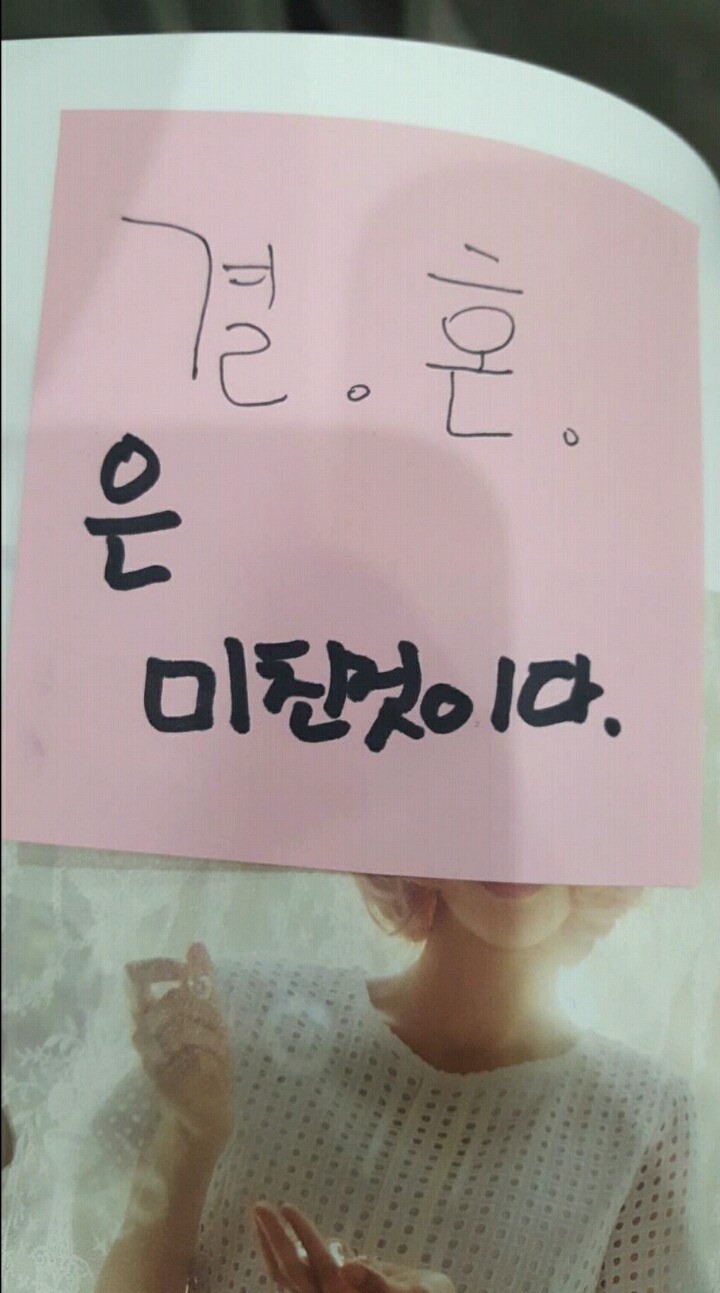 결。혼。
은
미친멋이다.